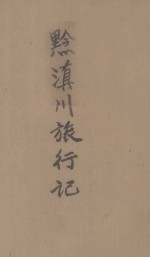 黔滇川旅行记